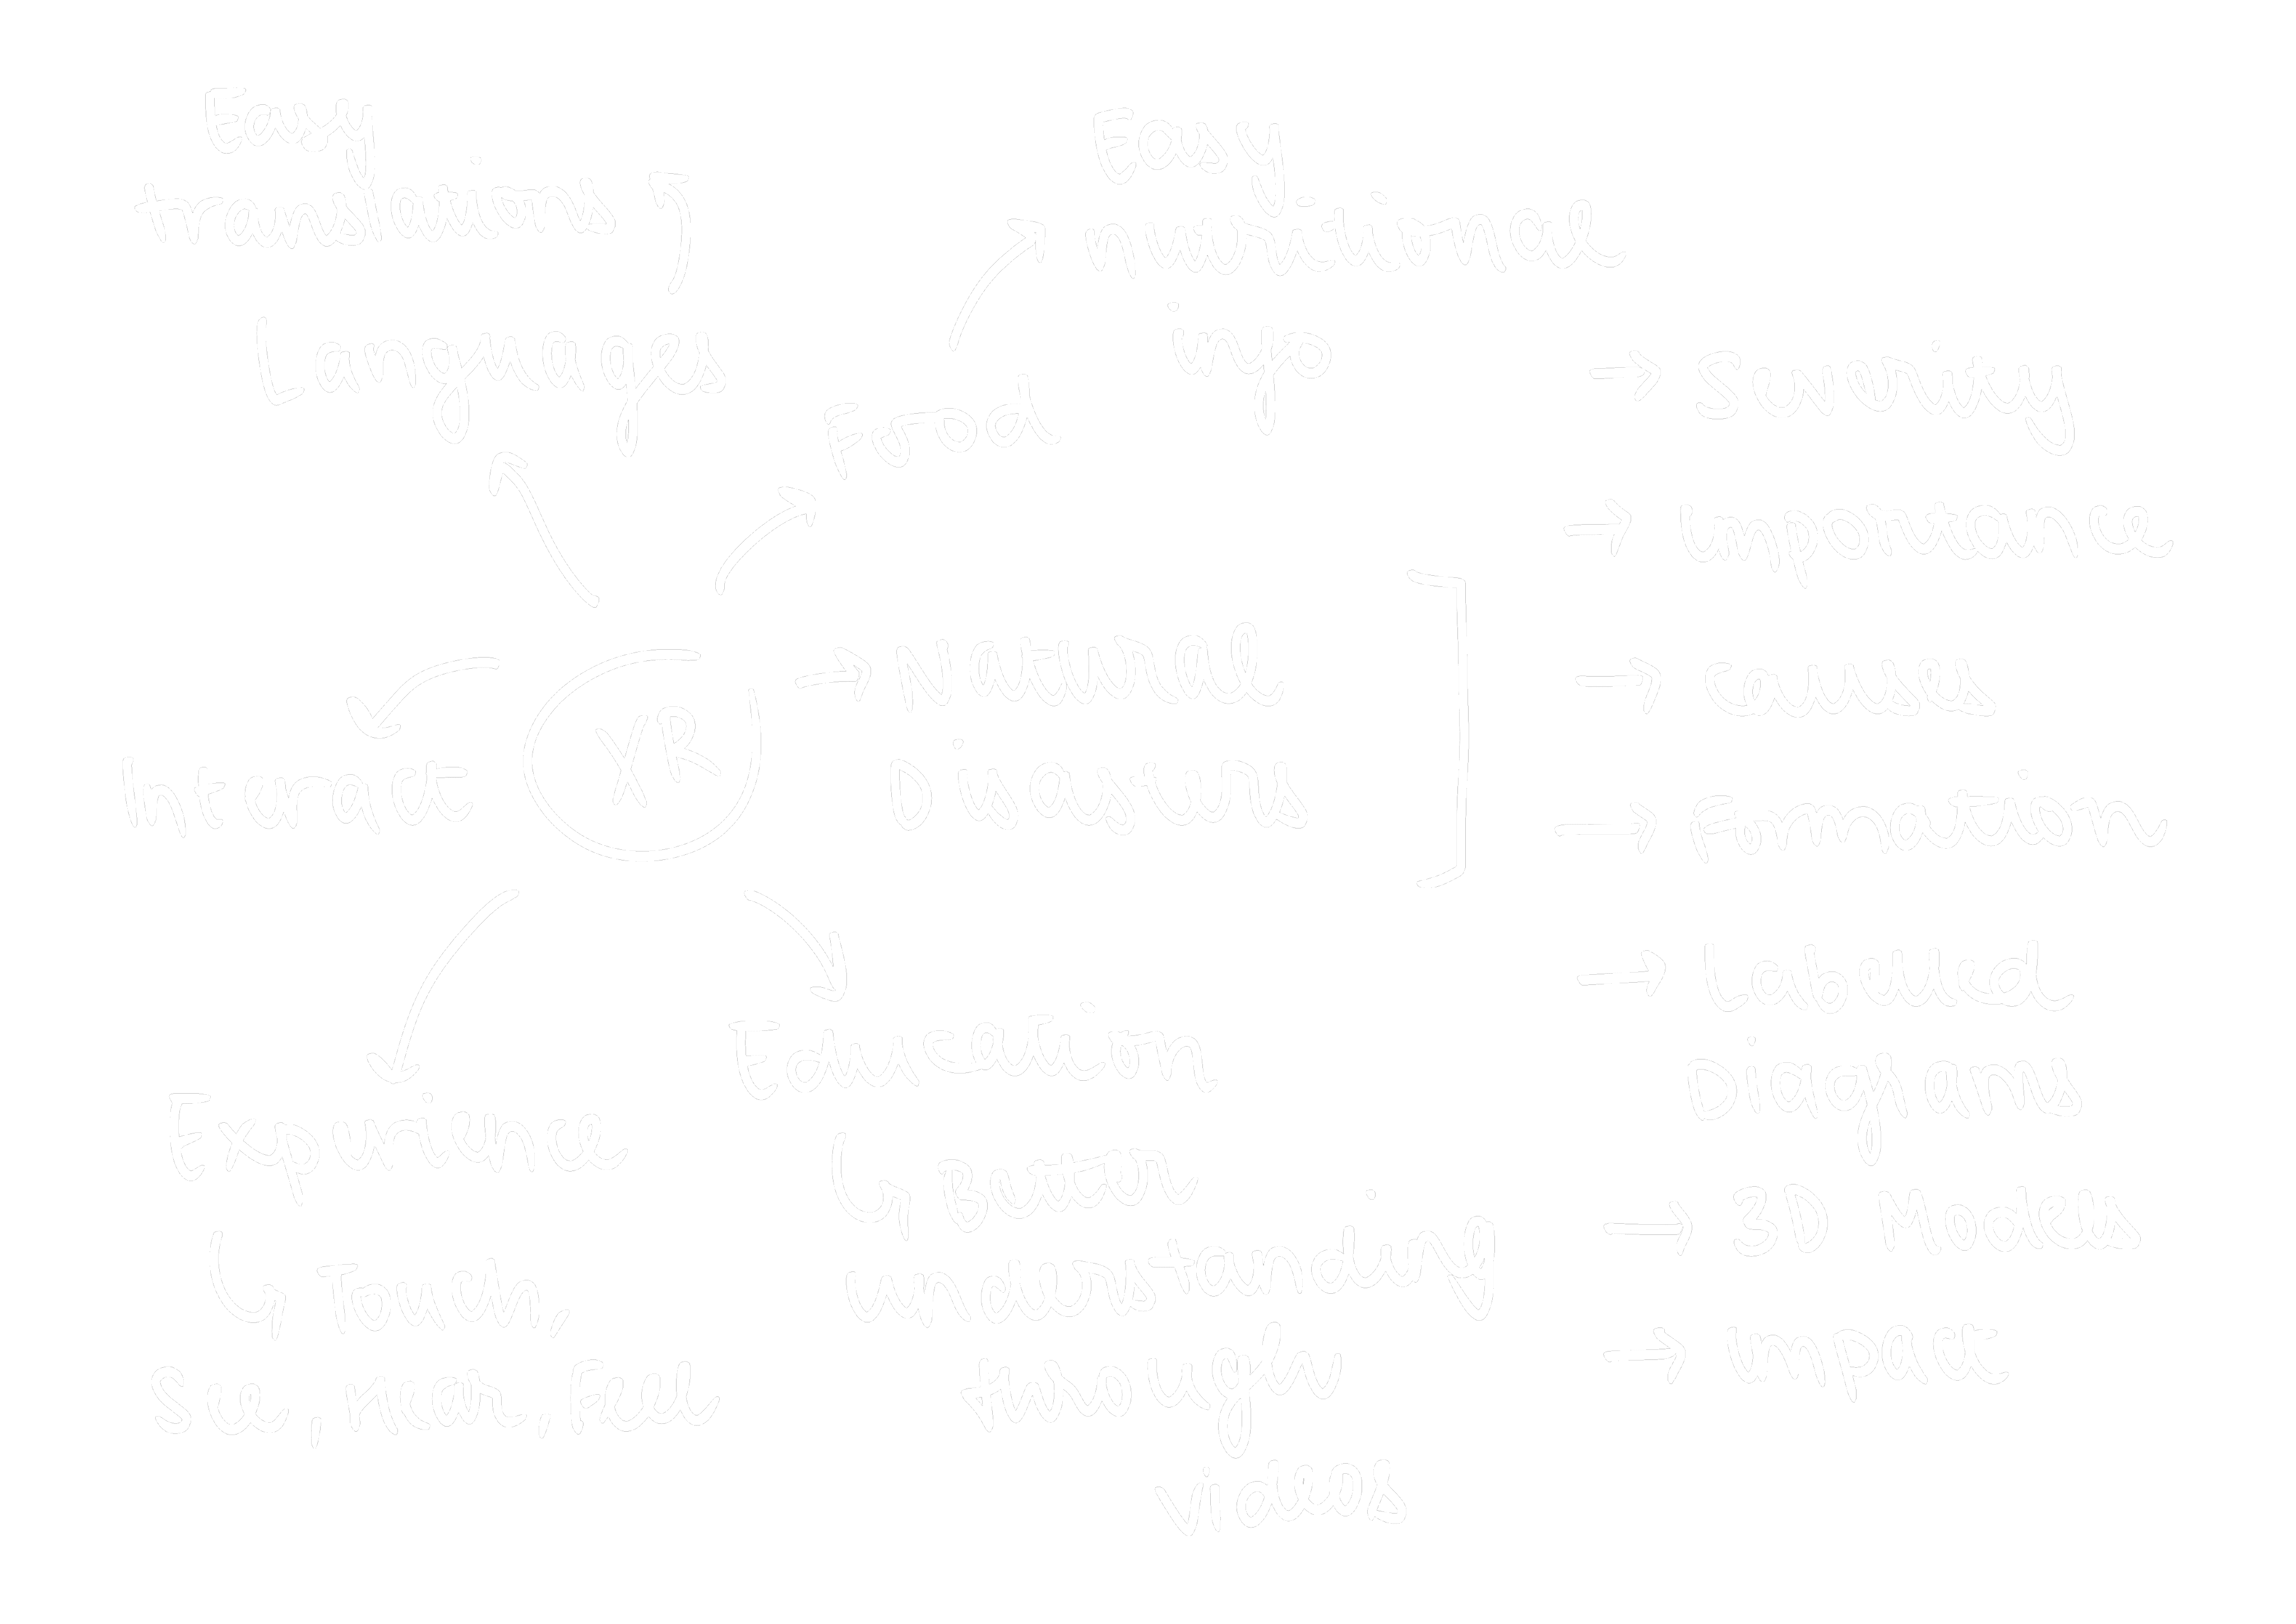 Easy
translations
Languages
Easy
nutritional
info
Food
XR
Interact
Natural
Disasters
→ Severity
→ importance
→ causes
→ Formation
→ Labelled
Diagrams
→ 3D Models
→ impact
Experience
↳ Touch,
see, Hear, Feel
Education
↳ Better
understanding
through
videos